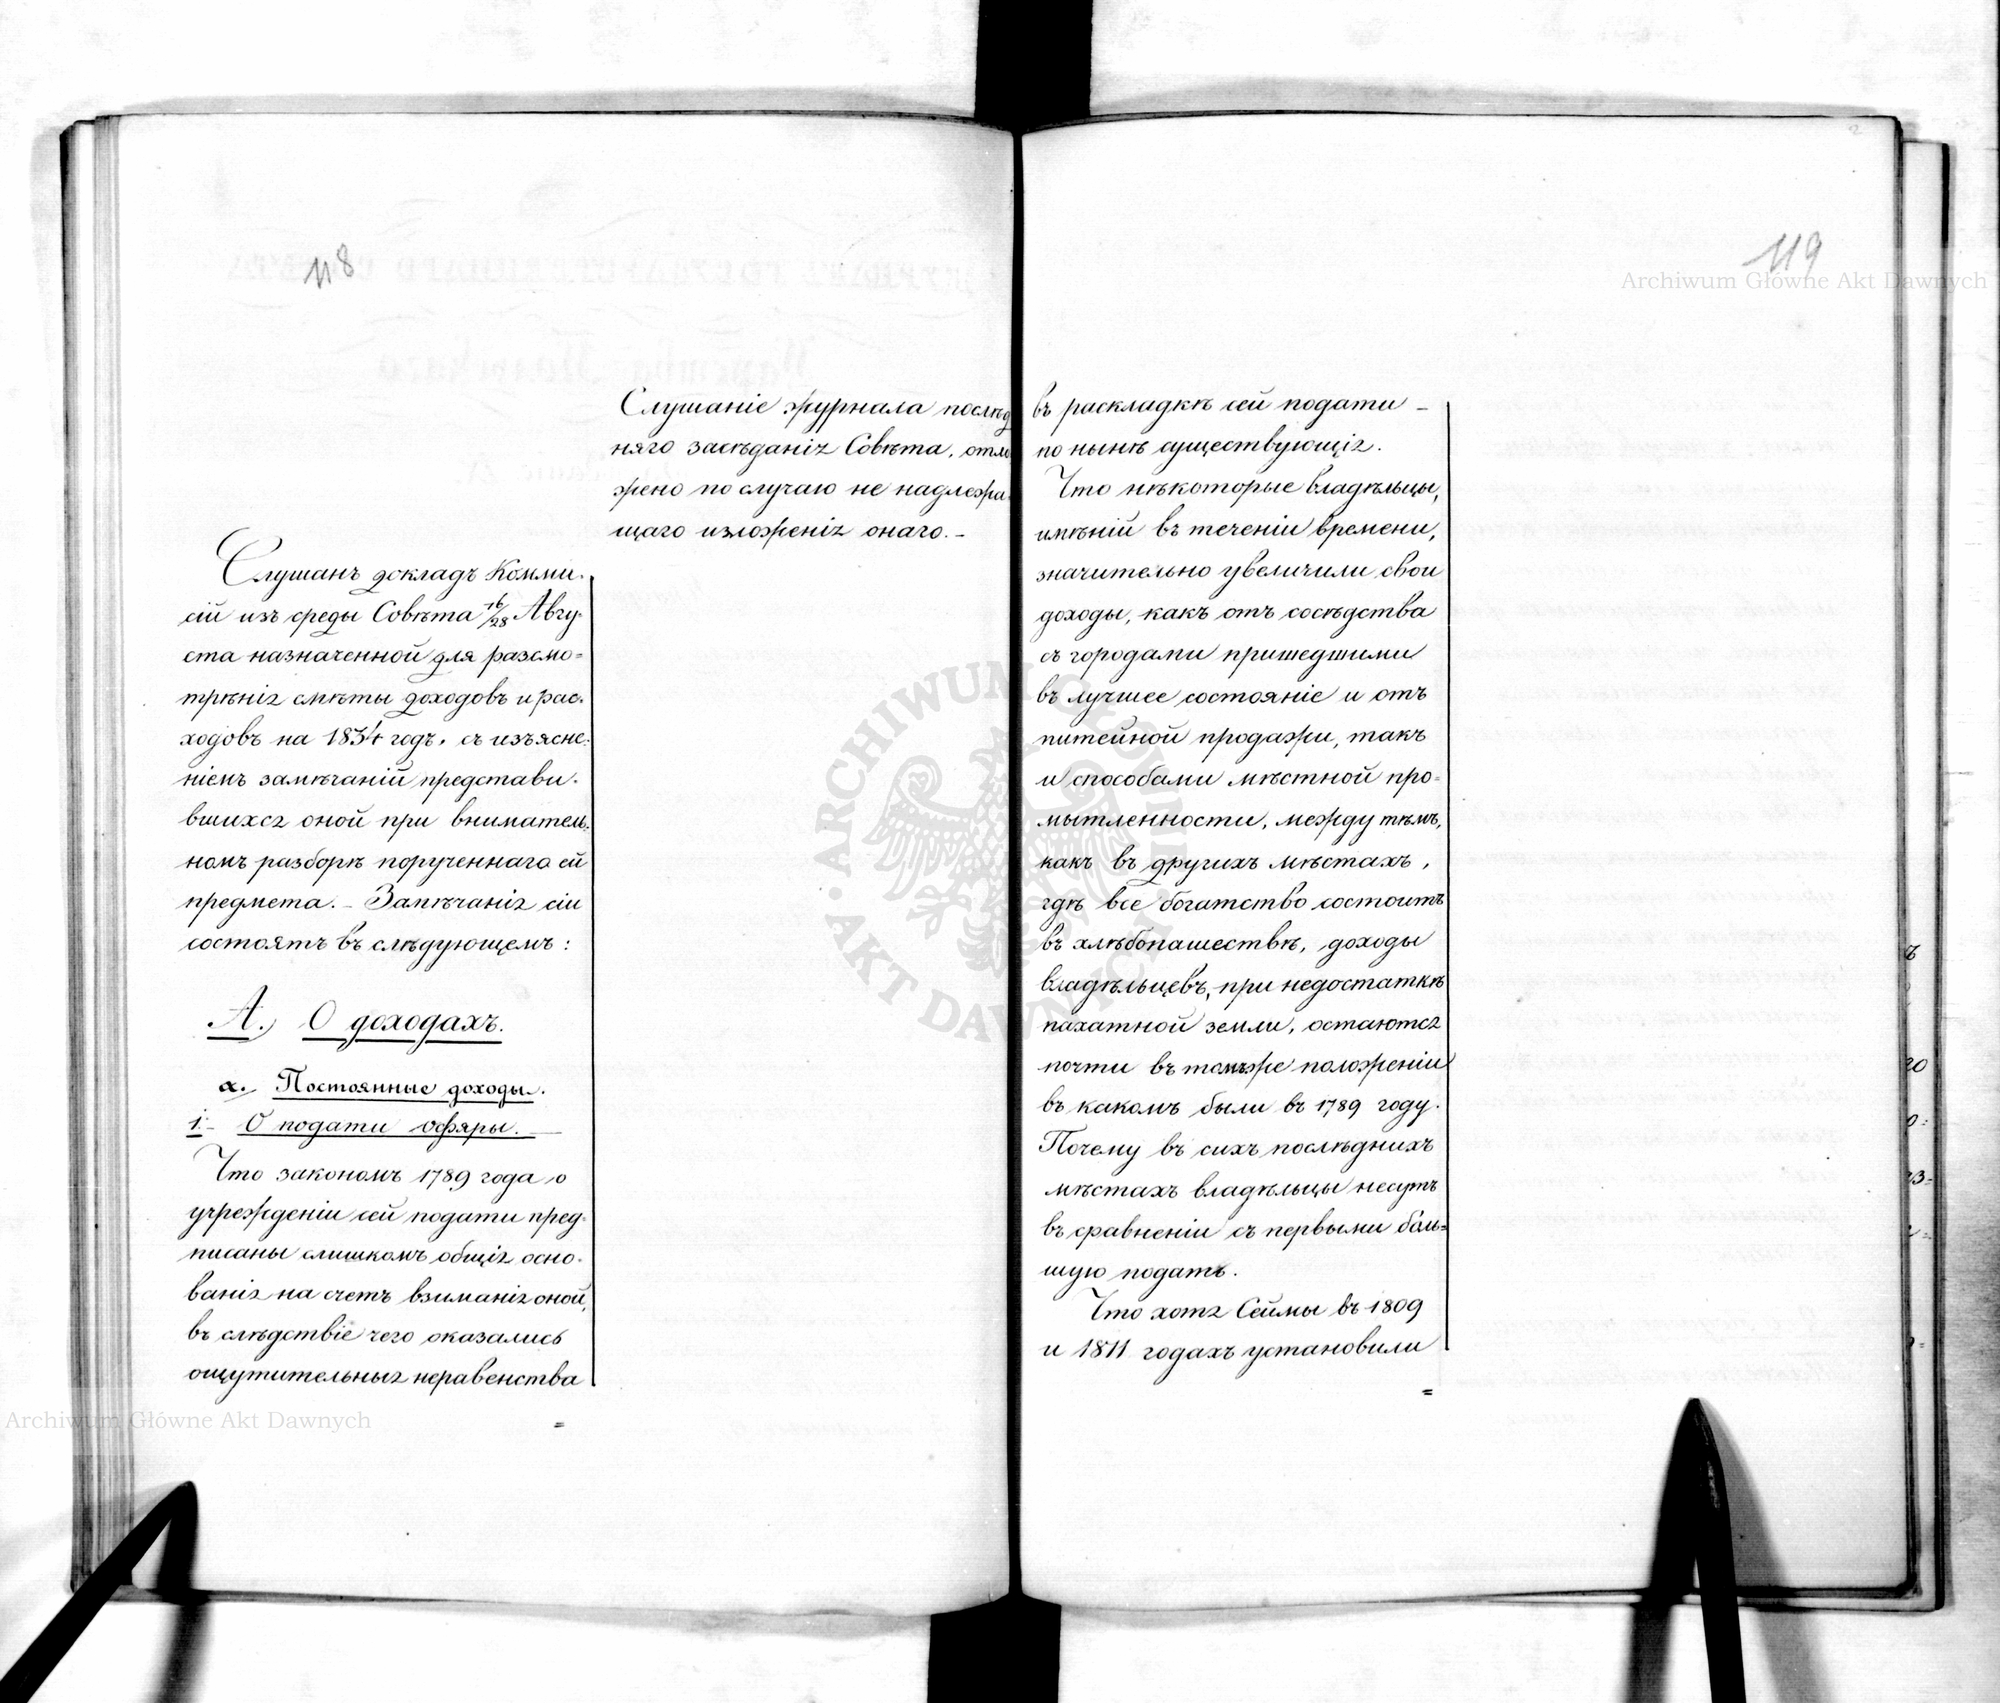 118
Слушаніе журнала послѣд
няго засѣданія Совѣта, отло
жено по случаю не надлежа
щаго изложенія онаго. -
Слушанъ докладъ Комми-
сій изъ среды Совѣта 16/28 Авгу-
ста назначенной для разсмо-
трѣнія смѣты доходовъ и рас-
ходовъ на 1834 годъ, съ изъясне-
ніемъ замѣчаній представи-
вшихся оной при вниматель-
номъ разборѣ порученнаго ей
предмета. - Замѣчанія сіи
состоятъ въ слѣдующемъ:
А. О доходахъ.
а. Постоянные доходы.
1. - О подати офяры. -
Что закономъ 1789 года о
учрежденіи сей подати пред-
писаны слишкомъ общія осно-
ванія на счетъ взиманія оной,
въ слѣдствіе чего оказались
ощутительныя неравенства
=
119
въ раскладкѣ сей подати -
по нынѣ существующія.
Что нѣкоторые владѣльцы,
имѣній въ теченіи времени,
значительно увеличили свои
доходы, какъ отъ сосѣдства
съ городами пришедшими
въ лучшее состояніе и отъ
питейной продажи, такъ
и способами мѣстной про-
мышленности, между тѣмъ,
какъ въ другихъ мѣстахъ,
гдѣ все богатство состоитъ
въ хлѣбопашествѣ, доходы
владѣльцевъ, при недостаткѣ
пахатной земли, остаются
почти въ томъже положеніи
въ какомъ были въ 1789 году.
Почему въ сихъ послѣднихъ
мѣстахъ владѣльцы несутъ
въ сравненіи съ первыми боль-
шую подать.
Что хотя Сеймы въ 1809
и 1811 годахъ установили
=
Archiwum Główne Akt Dawnych
Archiwum Główne Akt Dawnych